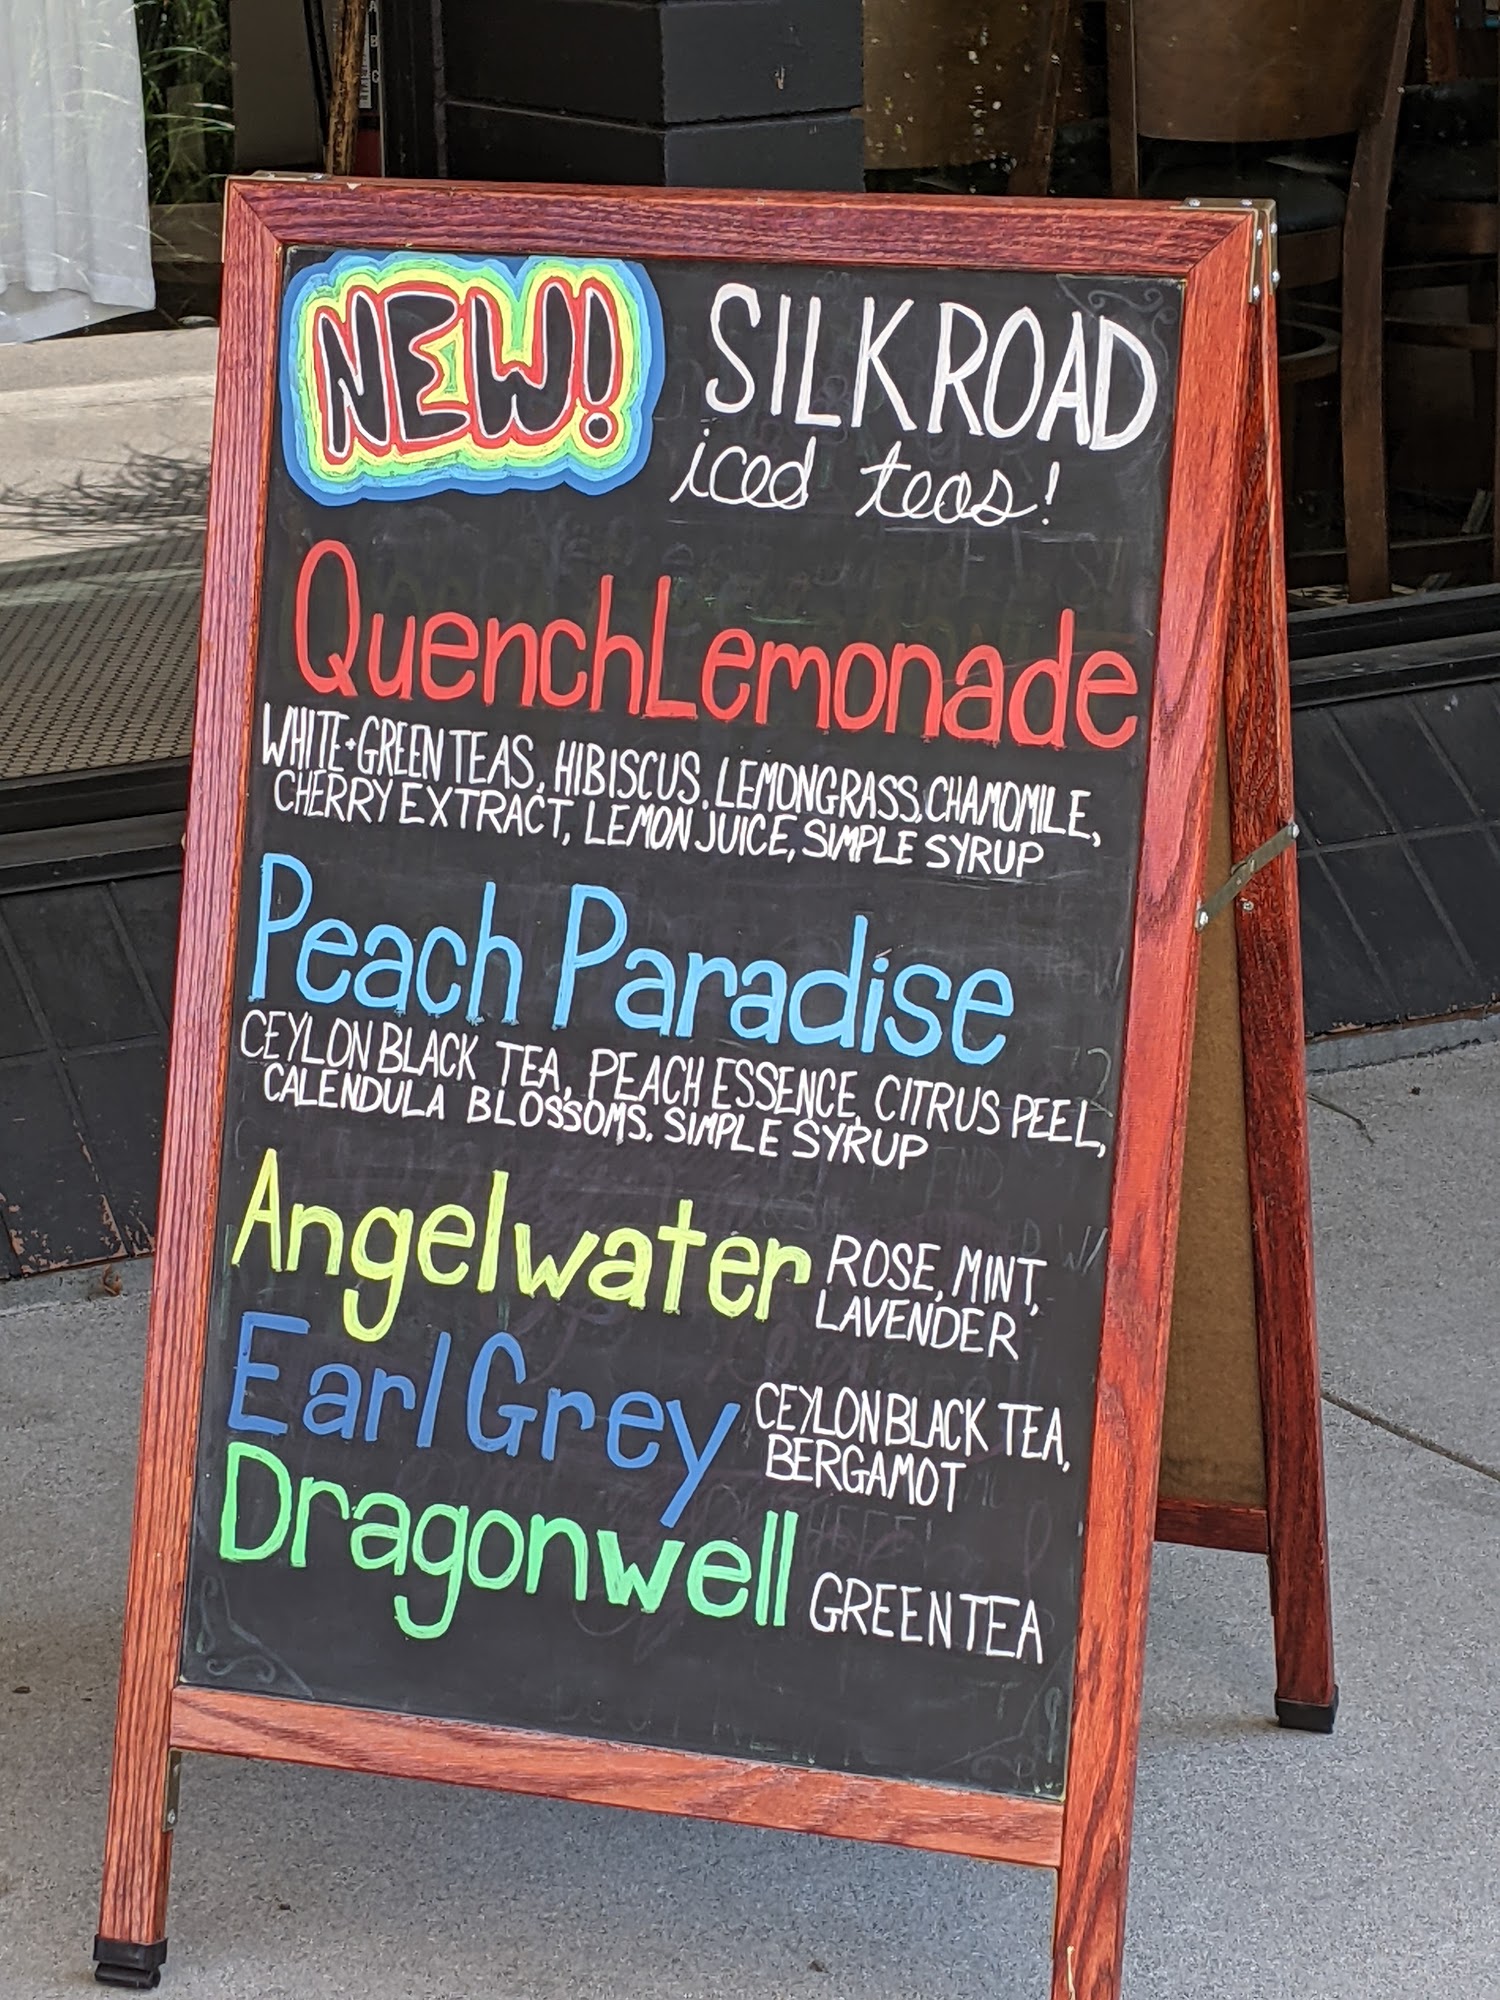 NEW! SILK ROAD
iced teas!
Quench Lemonade
WHITE + GREEN TEAS, HIBISCUS, LEMONGRASS, CHAMOMILE,
CHERRY EXTRACT, LEMON JUICE, SIMPLE SYRUP
Peach Paradise
CEYLON BLACK TEA, PEACH ESSENCE, CITRUS PEEL,
CALENDULA BLOSSOMS, SIMPLE SYRUP
Angelwater ROSE, MINT,
LAVENDER
Earl Grey CEYLON BLACK TEA,
BERGAMOT
Dragonwell GREEN TEA